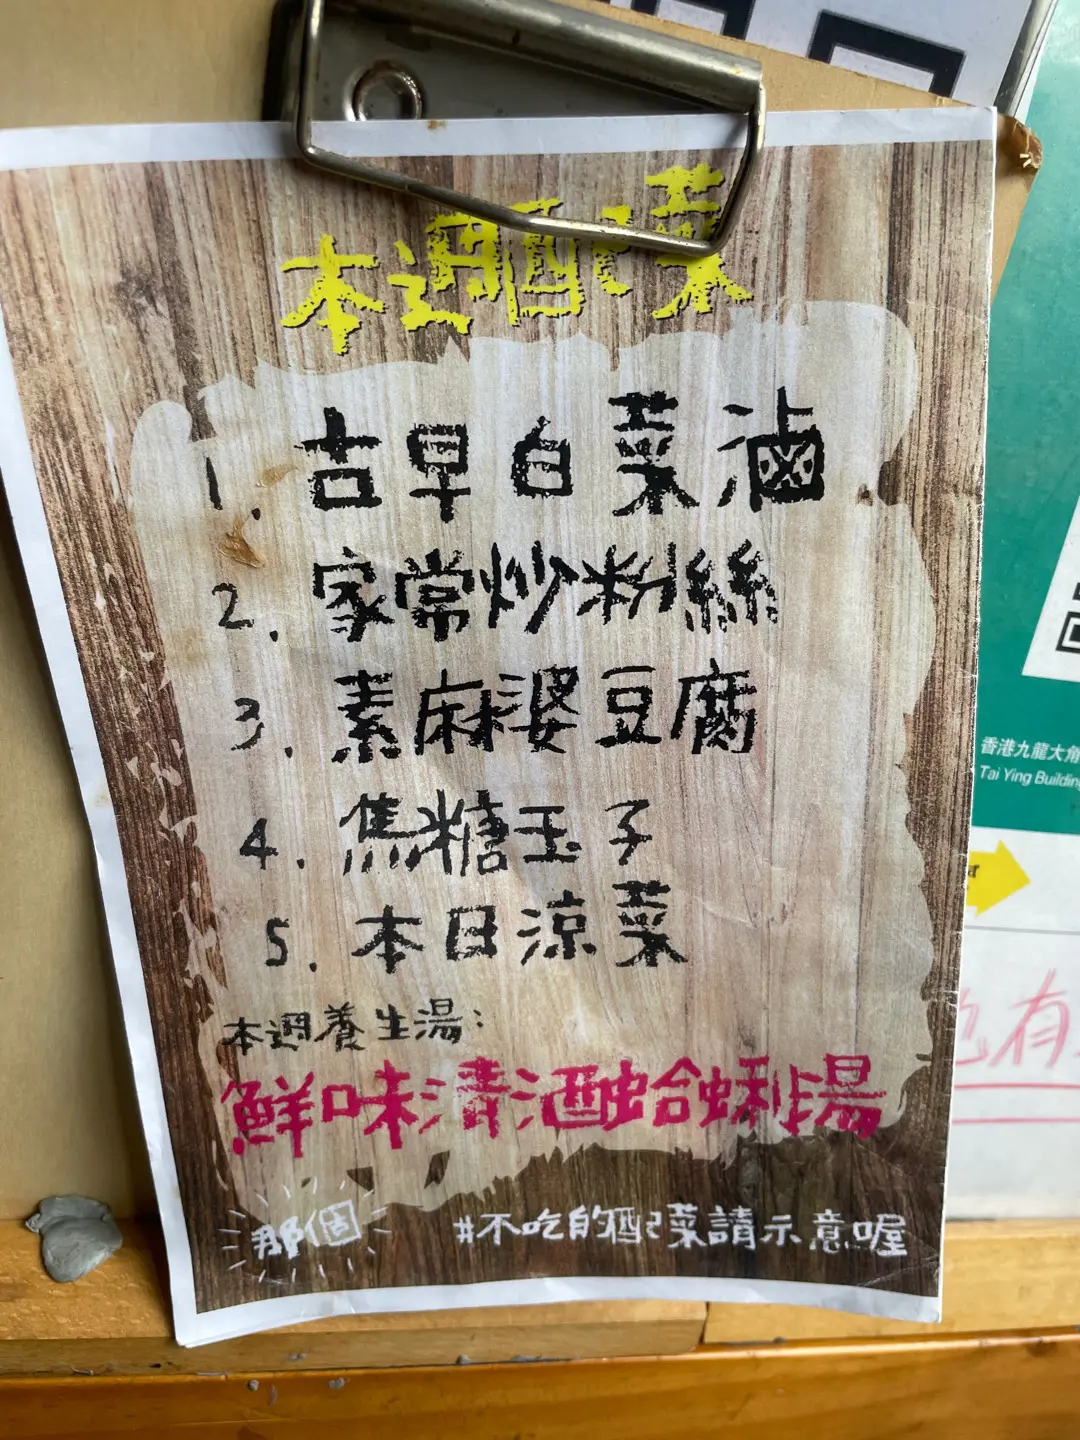 本週配菜
1. 古早白菜滷
2. 家常炒粉絲
3. 素麻婆豆腐
4. 焦糖玉子
5. 本日涼菜
本週養生湯：
鮮味清酒蛤蜊湯
那個
#不吃的配菜請示意喔
香港九龍大角
Tai Ying Building
也有